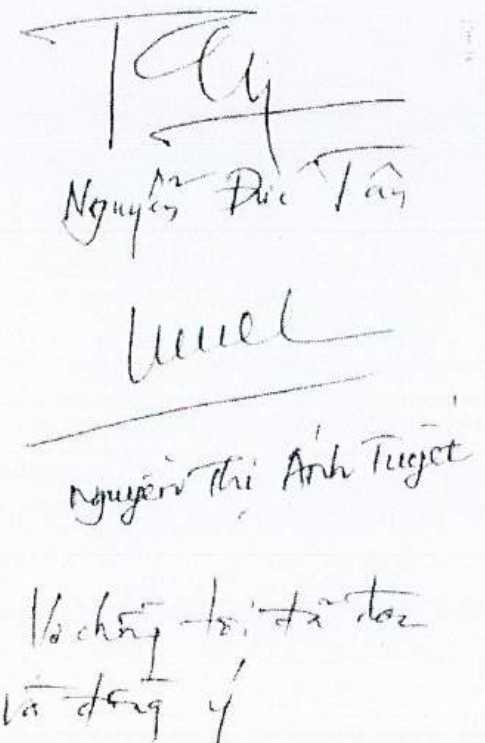 Nguyễn Đức Tân
Nguyễn Thị Ánh Tuyết
Vợ chồng tôi đã đọc
và đồng ý